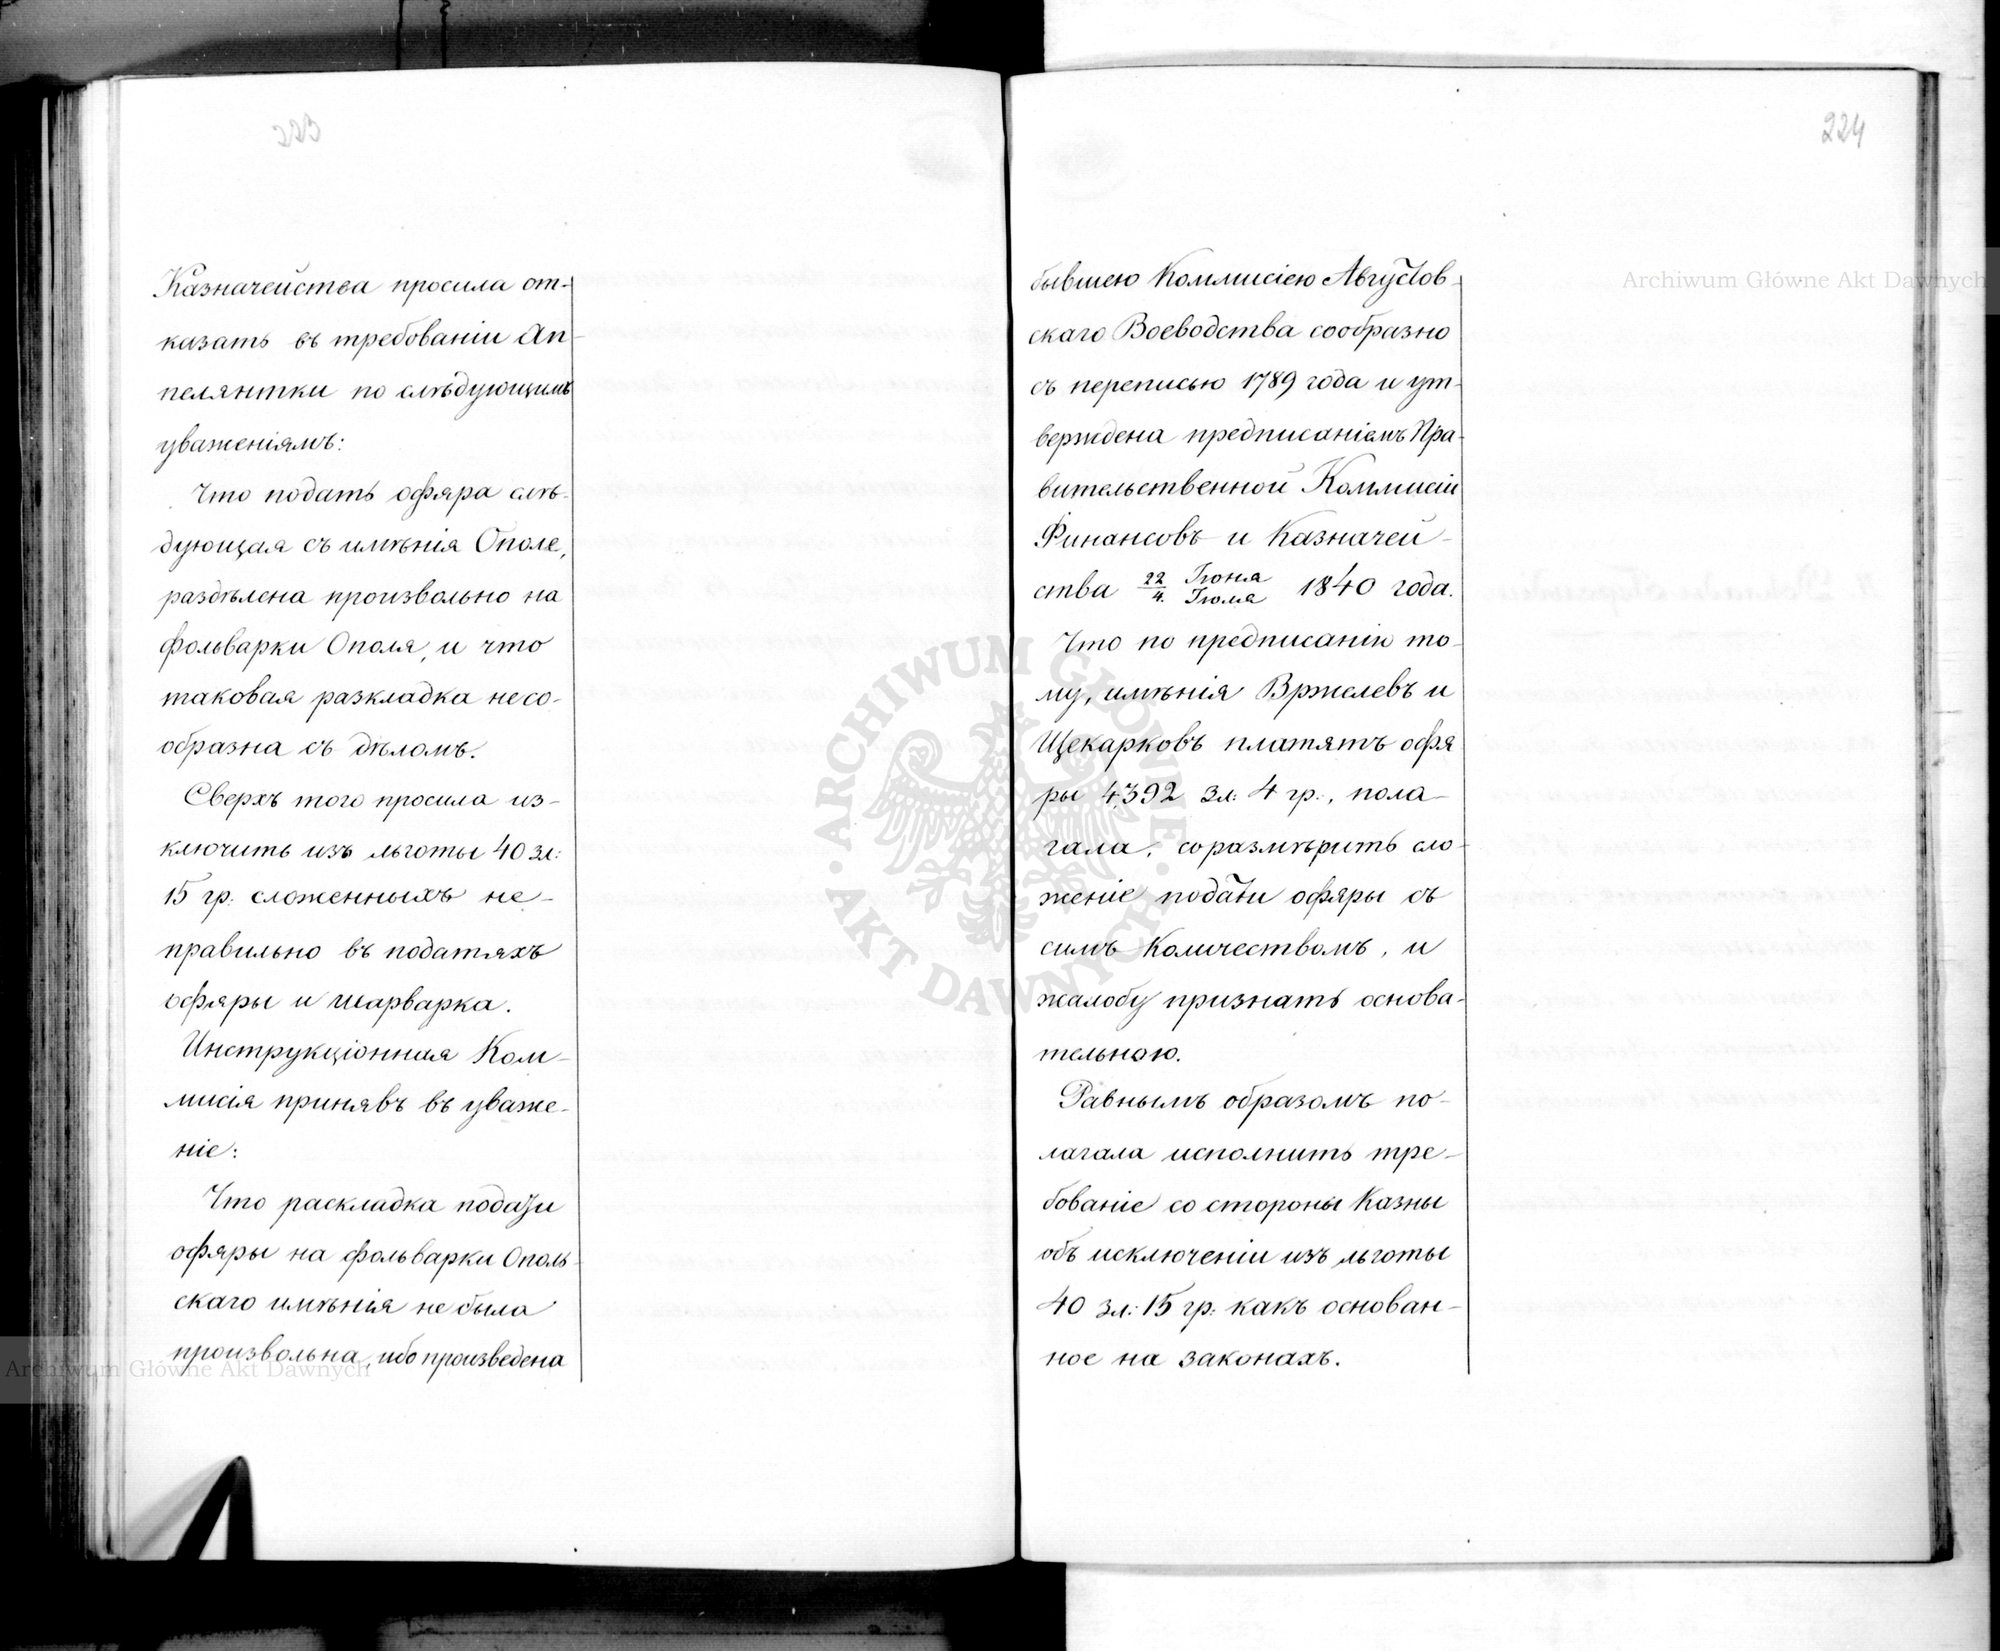 223
Казначейства просила от-
казать въ требованіи Ап-
пелянтки по слѣдующимъ
уваженіямъ:
Что подать офяра слѣ-
дующая съ имѣнія Ополе,
раздѣлена произвольно на
фольварки Ополя, и что
таковая разкладка несо-
образна съ дѣломъ.
Сверхъ того просила из-
ключить изъ льготы 40 зл:
15 гр: сложенныхъ не-
правильно въ податяхъ
офяры и шарварка.
Инструкціонная Ком-
мисія принявъ въ уваже-
ніе:
Что раскладка подати
офяры на фольварки Ополь-
скаго имѣнія не была
произвольна, ибо произведена
224
бывшею Коммисіею Августов-
скаго Воеводства сообразно
съ переписью 1789 года и ут-
верждена предписаніемъ Пра-
вительственной Коммисіи
Финансовъ и Казначей-
ства 22/4. Іюня/Іюля 1840 года.
Что по предписанію то-
му, имѣнія Вржелевъ и
Щекарковъ платятъ офя
ры 4,392 зл: 4 гр:, пола-
гала, соразмѣрить сло-
женіе подати офяры съ
симъ количествомъ, и
жалобу признать основа-
тельною.
Равнымъ образомъ по-
лагала исполнить тре-
бованіе со стороны Казны
объ исключеніи изъ льготы
40 зл: 15 гр: какъ основан-
ное на законахъ.
Archiwum Główne Akt Dawnych
Archiwum Główne Akt Dawnych
ARCHIWUM GŁÓWNE · AKT DAWNYCH ·